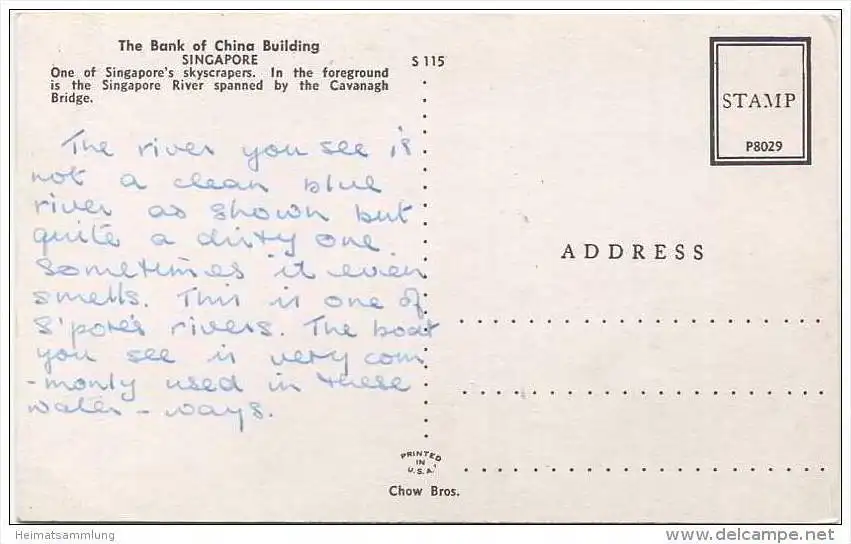 The Bank of China Building
SINGAPORE
One of Singapore's skyscrapers. In the foreground
is the Singapore River spanned by the Cavanagh
Bridge.
S 115
The river you see is
not a clean blue
river as shown but
quite a dirty one
sometimes it even
smells. This is one of
S'pore's rivers. The boat
you see is very com
-monly used in these
water-ways.
STAMP
P8029
ADDRESS
PRINTED
IN
U.S.A.
Chow Bros.
Heimatsammlung
www.delcampe.net